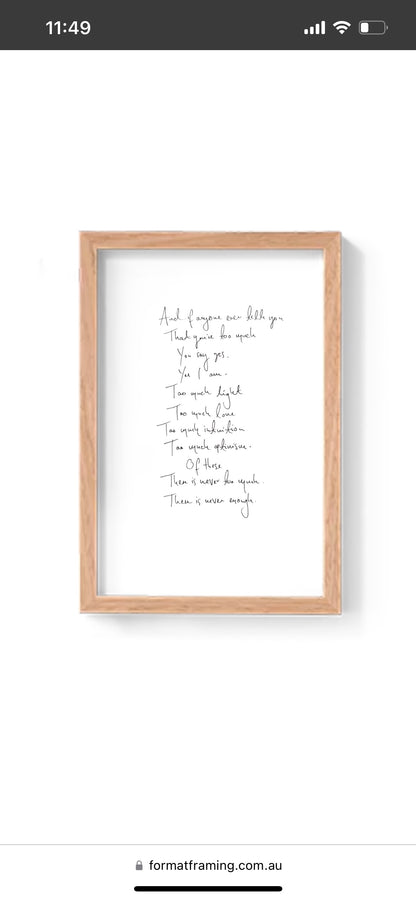 11:49
And if anyone ever tells you
That you're too much
You say yes.
Yes I am.
Too much light
Too much love
Too much intuition
Too much optimism.
Of those
There is never too much.
There is never enough.
formatframing.com.au